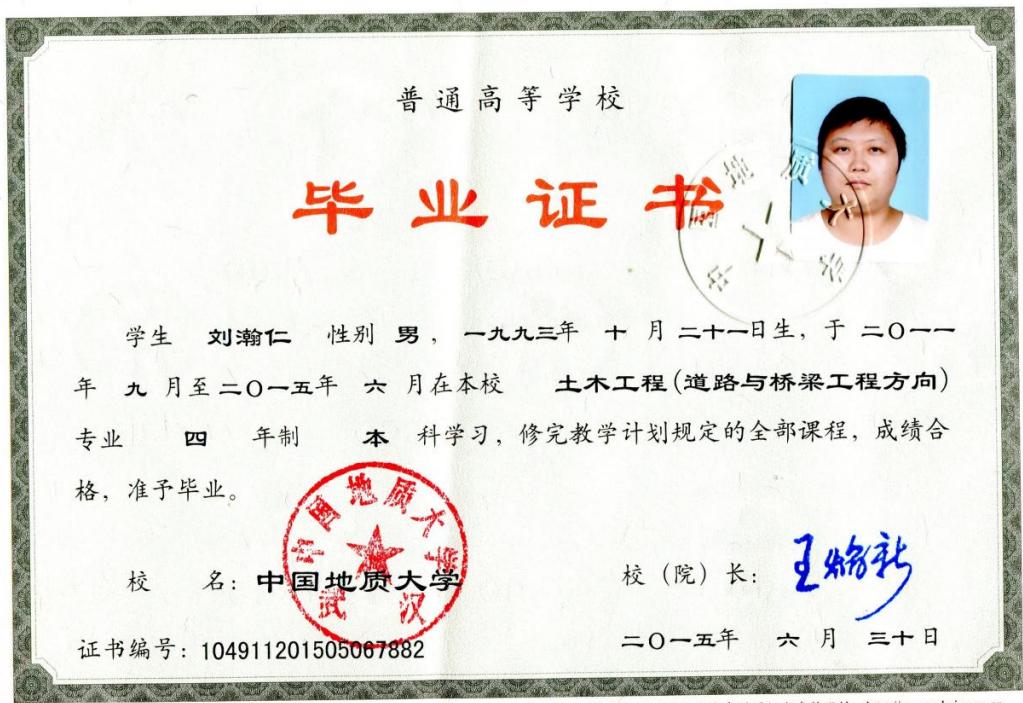 普通高等学校
毕业证书
学生 刘瀚仁 性别 男，一九九三年 十 月 二十一日生，于 二〇一一
年 九 月至二〇一五年 六 月在本校 土木工程(道路与桥梁工程方向)
专业 四 年制 本 科学习，修完教学计划规定的全部课程，成绩合
格，准予毕业。
中国地质大学
武汉
校 名：中国地质大学
校（院）长：
证书编号：104911201505067882
二〇一五年 六 月 三十日